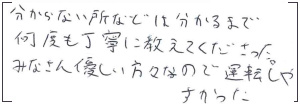 分からない所などは分かるまで
何度も丁寧に教えてくださった。
みなさん優しい方々なので運転しや
すかった